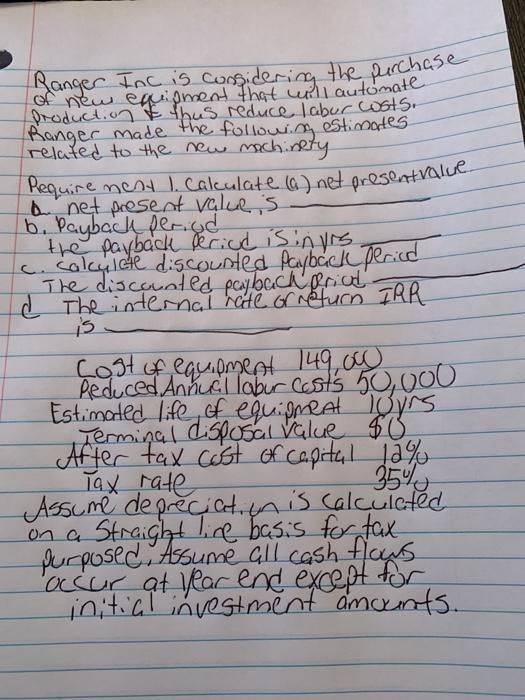 Ranger Inc is considering the purchase
of new equipment that will automate
production & thus reduce labur costs.
Ranger made the following estimates
related to the new machinery
Require ment 1. Calculate (a) net present value
a net present value is
b. Payback period
the payback period is in yrs
c. calculate discounted Payback period
The discounted payback period
d The internal rate of return IRR
is
Cost of equipment 149,000
Reduced Annual labur costs 50,000
Estimated life of equipment 10yrs
Terminal disposal value $0
After tax cost of capital 12%
Tax rate 35%
Assume depreciation is calculated
on a Straight line basis for tax
purposed. Assume all cash flows
occur at Year end except for
initial investment amounts.